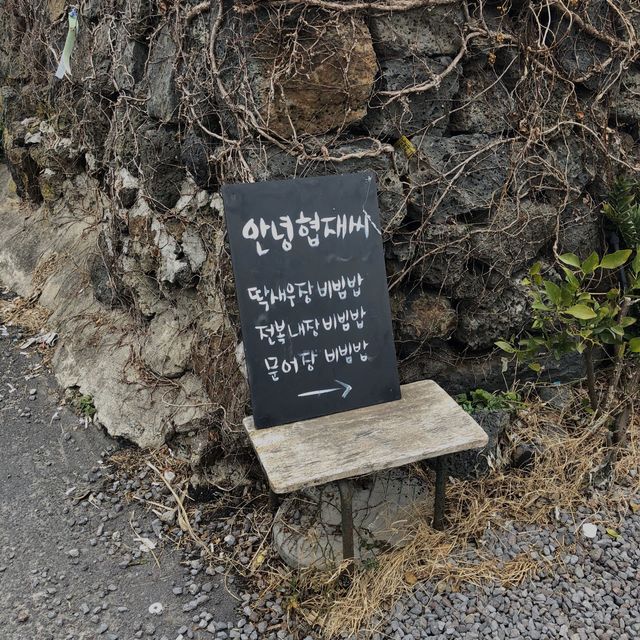 안녕협재씨
딱새우장 비빔밥
전복내장비빔밥
문어장 비빔밥